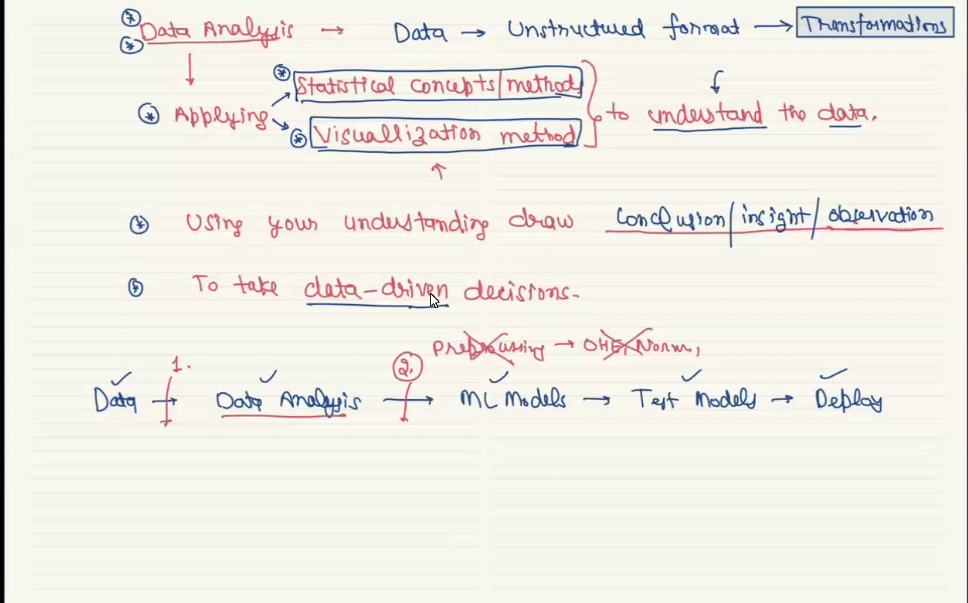 Data Analysis → Data → Unstructured format → Transformations
Statistical concepts/method
Applying } to understand the data.
Visuallization method
Using your understanding draw conclusion/insight/observation
To take data-driven decisions.
Preprocussing → OHE, Norm,
1. 2.
Data → Data Analysis → ML Models → Test Models → Deploy